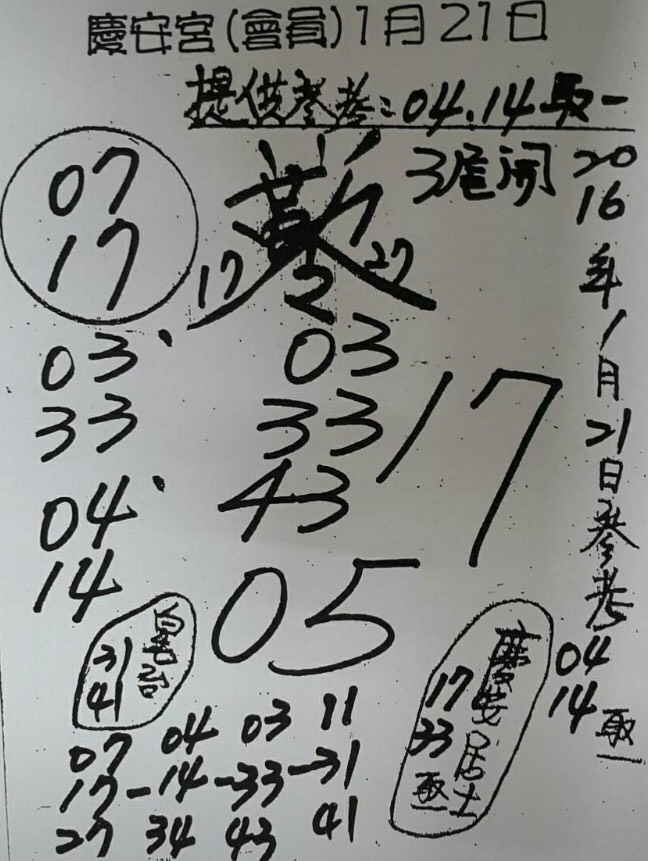 慶安宮(會員)1月21日
提供參考:04.14取一
3尾開
07
17
17 2 27
03
33
04
14
03
33
43
17
05
2016年1月21日參考
04
14 取一
31
41
慶安居士
17
33
取一
07 04 03 11
17-14-33-31
27 34 43 41